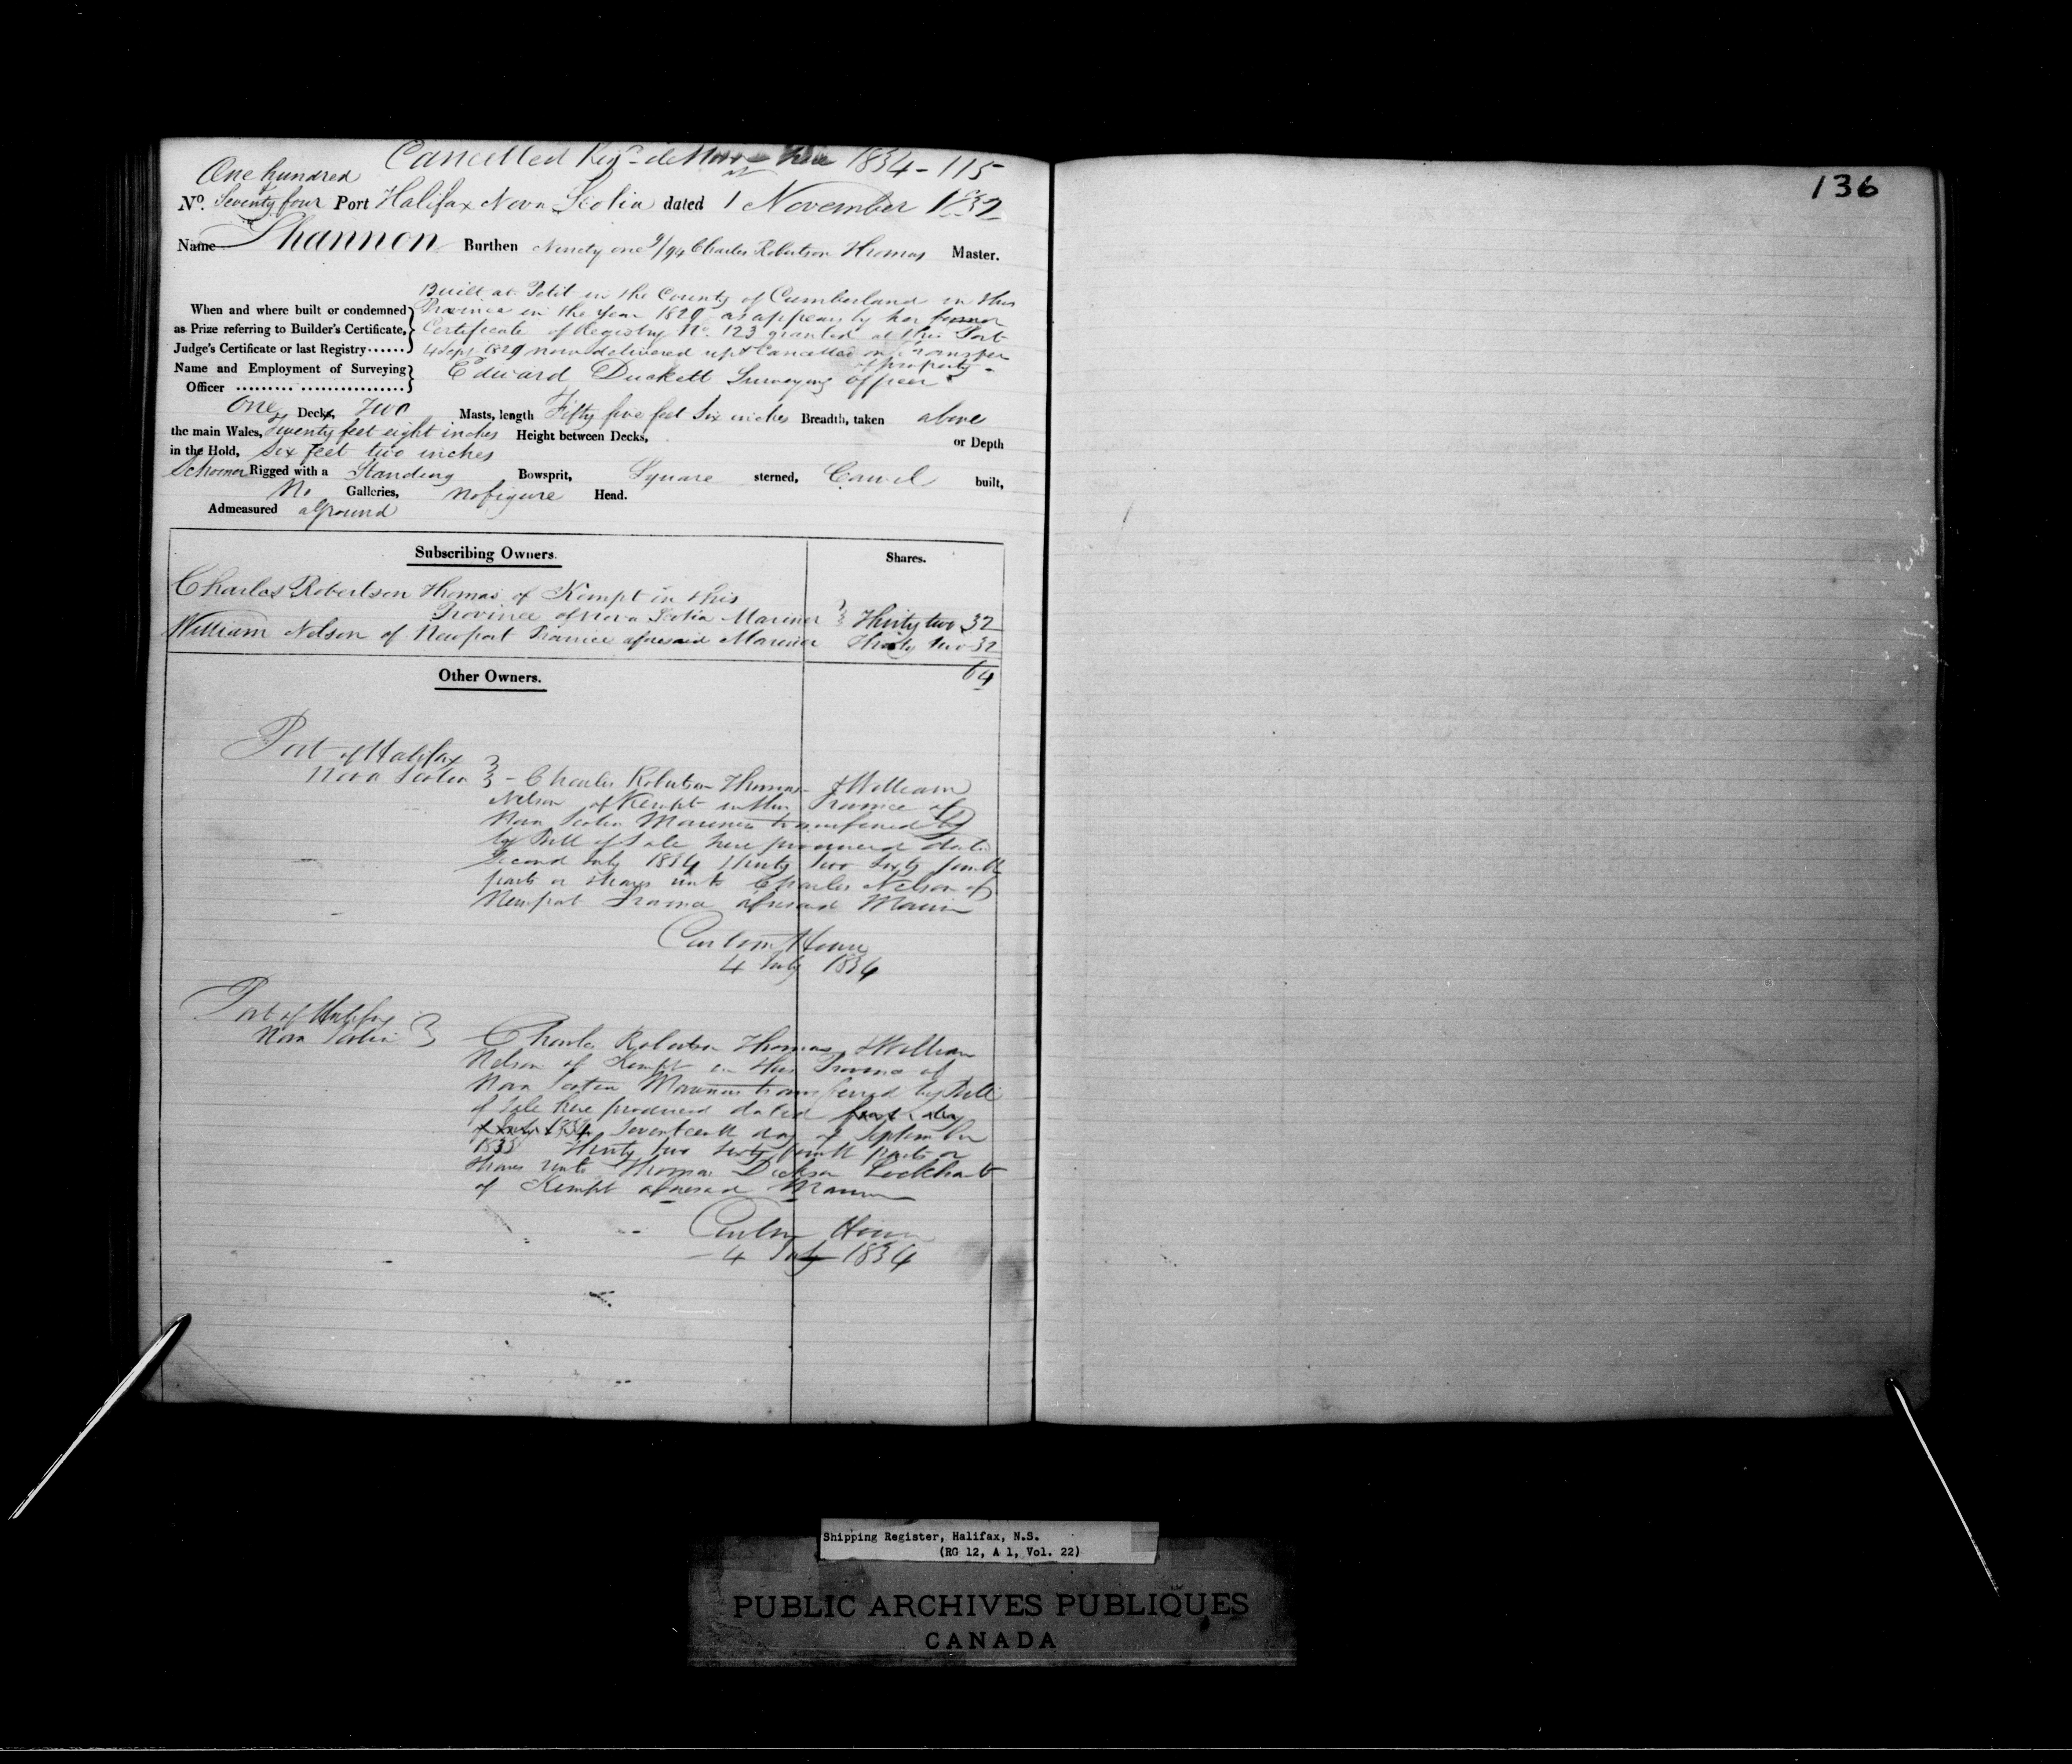 Cancelled Reg. de Novo here 1834-115
One hundred
No. Seventy four Port Halifax Nova Scotia dated 1st November 1832
Name Shannon Burthen Ninety one 9/94 Charles Robertson Thomas Master.
Built at Petit in the County of Cumberland in this
When and where built or condemned Province in the year 1829 as appears by her former
as Prize referring to Builder's Certificate, Certificate of Registry No. 123 granted at this Port
Judge's Certificate or last Registry...... 4 Sept 1829 now delivered up & Cancelled on Transfer
of property -
Name and Employment of Surveying Edward Duckett Surveying officer
Officer
One Decks, Two Masts, length Fifty five feet Six inches Breadth, taken above
the main Wales, Twenty feet eight inches Height between Decks, or Depth
in the Hold, Six feet two inches
Schooner Rigged with a Standing Bowsprit, Square sterned, Carvel built,
No Galleries, No figure Head.
Admeasured aground
Subscribing Owners. Shares.
Charles Robertson Thomas of Kempt in this
Province of Nova Scotia Mariner Thirty two 32
William Nelson of Newport Province aforesaid Mariner Thirty two 32
64
Other Owners.
Port of Halifax
Nova Scotia - Charles Robertson Thomas & William
Nelson of Kempt in this Province of
Nova Scotia Mariners transferred by
by Bill of Sale here produced dated
Second July 1834 Thirty two Sixty fourth
parts or shares unto Charles Nelson of
Newport Province aforesaid Mariner
Custom House
4 July 1834
Port of Halifax
Nova Scotia Charles Robertson Thomas & William
Nelson of Kempt in this Province of
Nova Scotia Mariners transferred by Bill
of Sale here produced dated first day
of July 1834 Seventeenth day of September
1833 Thirty two Sixty fourth parts or
shares unto Thomas Dickson Lockhart
of Kempt aforesaid Mariner
Custom House
4 July 1834
136
Shipping Register, Halifax, N.S.
(RG 12, A 1, Vol. 22)
PUBLIC ARCHIVES PUBLIQUES
CANADA